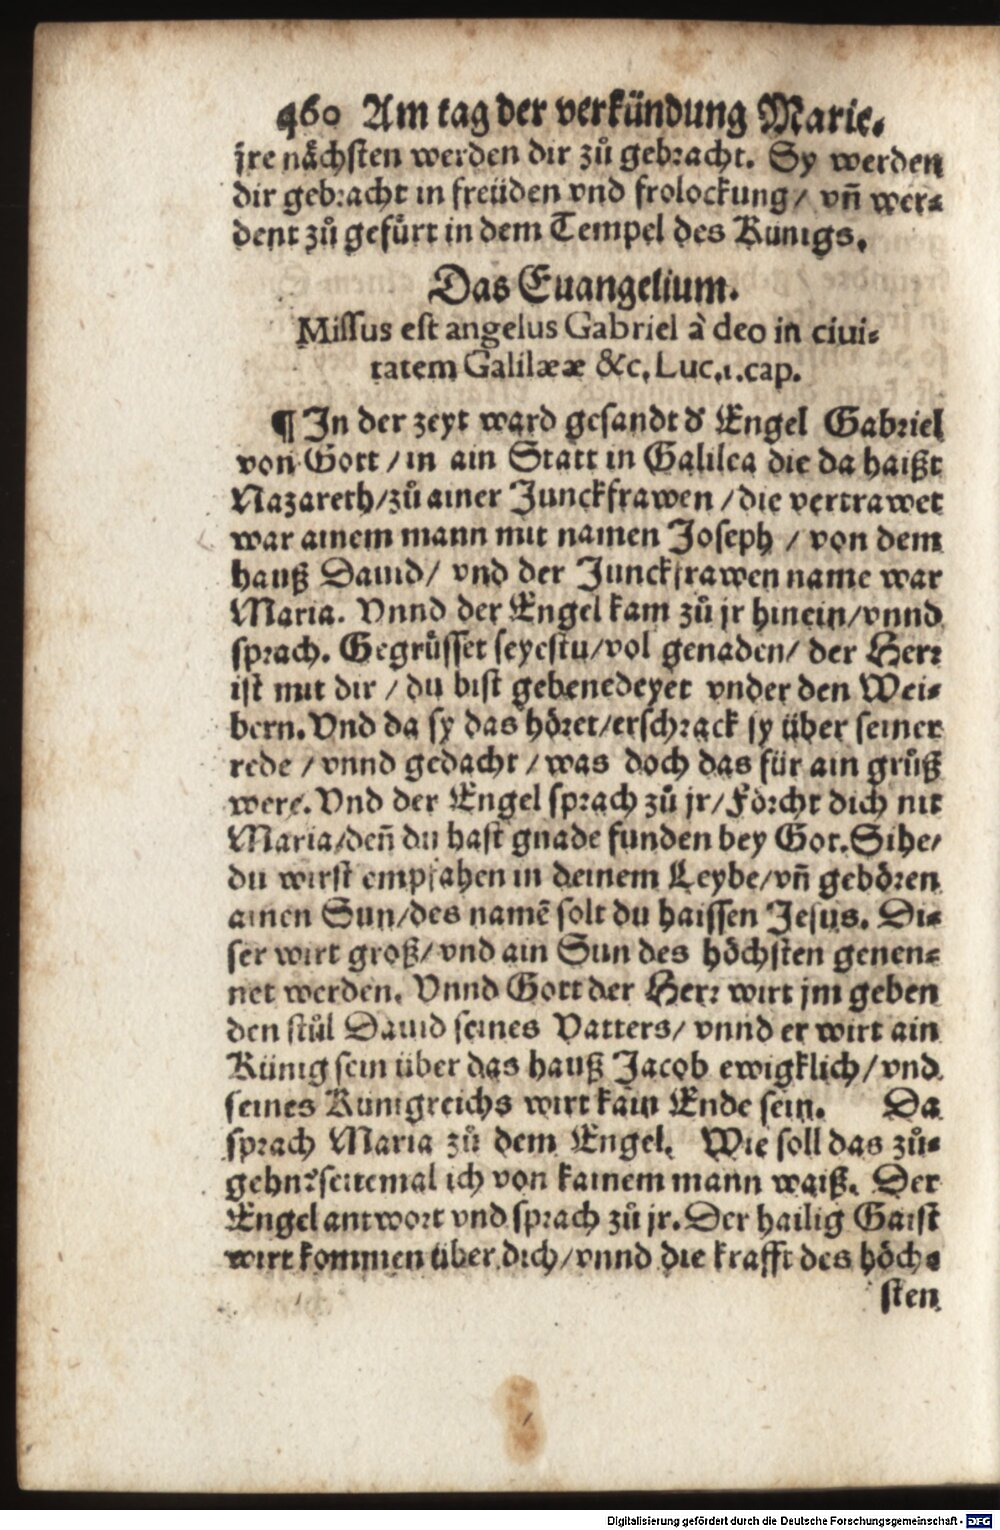 460 Am tag der verkündung Marie.
jre nächsten werden dir zů gebracht. Sy werden
dir gebracht in freüden vnd frolockung/ vñ wer⸗
dent zů gefürt in dem Tempel des Künigs.
Das Euangelium.
Missus est angelus Gabriel à deo in ciui⸗
tatem Galilææ &c. Luc.1.cap.
¶ In der zeyt ward gesandt d' Engel Gabriel
von Gott /in ain Statt in Galilea die da haißt
Nazareth/zů ainer Junckfrawen /die vertrawet
war ainem mann mit namen Joseph / von dem
hauß Dauid/ vnd der Junckfrawen name war
Maria. Vnnd der Engel kam zů jr hinein/vnnd
sprach. Gegrüsset seyestu/vol genaden/ der Herr
ist mit dir / du bist gebenedeyet vnder den Wei⸗
bern. Vnd da sy das höret/erschrack sy über seiner
rede /vnnd gedacht /was doch das für ain grůß
were. Vnd der Engel sprach zů jr/Förcht dich nit
Maria/deñ du hast gnade funden bey Got. Sihe/
du wirst empfahen in deinem Leybe/vñ gebören
ainen Sun/des namē solt du haissen Jesus. Di⸗
ser wirt groß/vnd ain Sun des höchsten genen⸗
net werden. Vnnd Gott der Herr wirt jm geben
den stůl Dauid seines Vatters/ vnnd er wirt ain
Künig sein über das hauß Jacob ewigklich/vnd
seines Künigreichs wirt kain Ende sein. Da
sprach Maria zů dem Engel. Wie soll das zů⸗
gehn?seitemal ich von kainem mann waiß. Der
Engel antwort vnd sprach zů jr. Der hailig Gaist
wirt kommen über dich/vnnd die krafft des höch⸗
sten
Digitalisierung gefördert durch die Deutsche Forschungsgemeinschaft - DFG